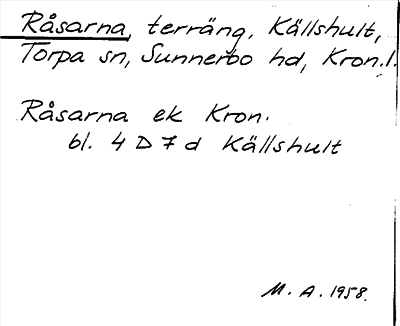 Råsarna, terräng, Källshult,
Torpa sn, Sunnerbo hd, Kron.l.
Råsarna ek Kron.
bl. 4 D 7 d Källshult
M. A. 1958.